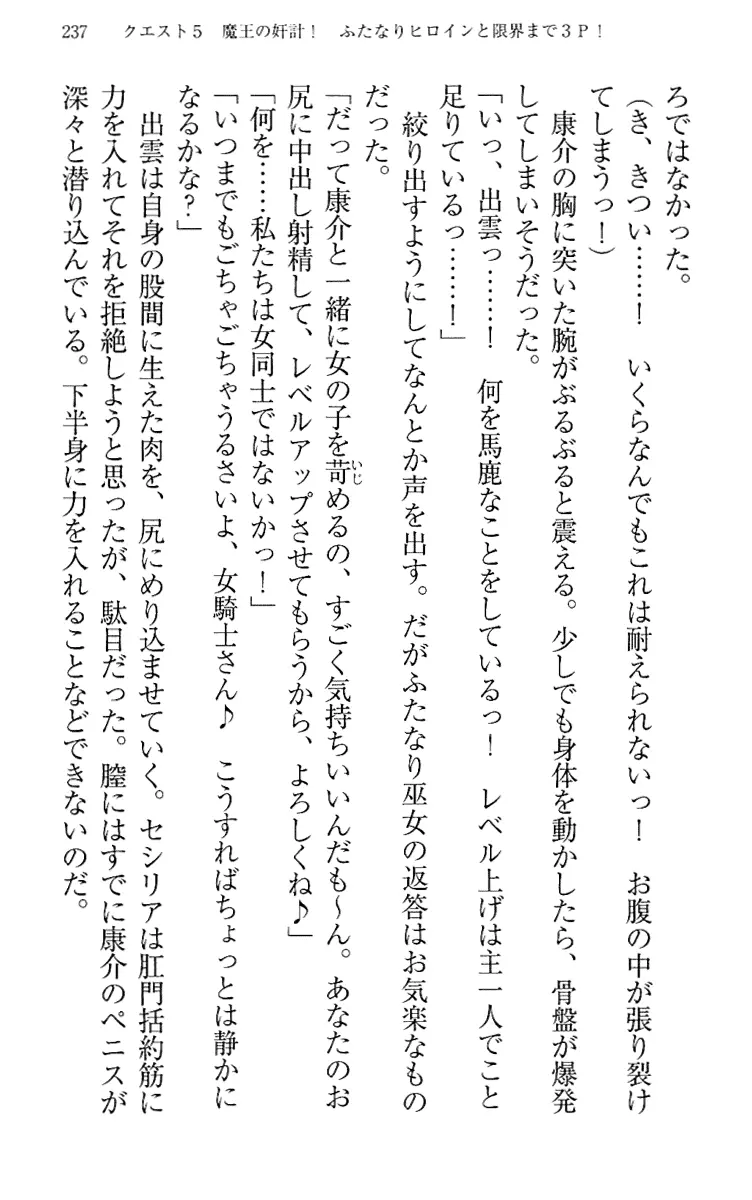 237　クエスト5　魔王の奸計！　ふたなりヒロインと限界まで3P！
ろではなかった。
（き、きつい……！　いくらなんでもこれは耐えられないっ！　お腹の中が張り裂け
てしまうっ！）
康介の胸に突いた腕がぶるぶると震える。少しでも身体を動かしたら、骨盤が爆発
してしまいそうだった。
「いっ、出雲っ……！　何を馬鹿なことをしているっ！　レベル上げは主一人でこと
足りているっ……！」
絞り出すようにしてなんとか声を出す。だがふたなり巫女の返答はお気楽なもの
だった。
「だって康介と一緒に女の子を苛めるの、すごく気持ちいいんだも～ん。あなたのお
尻に中出し射精して、レベルアップさせてもらうから、よろしくね♪」
「何を……私たちは女同士ではないかっ！」
「いつまでもごちゃごちゃうるさいよ、女騎士さん♪　こうすればちょっとは静かに
なるかな？」
出雲は自身の股間に生えた肉を、尻にめり込ませていく。セシリアは肛門括約筋に
力を入れてそれを拒絶しようと思ったが、駄目だった。膣にはすでに康介のペニスが
深々と潜り込んでいる。下半身に力を入れることなどできないのだ。